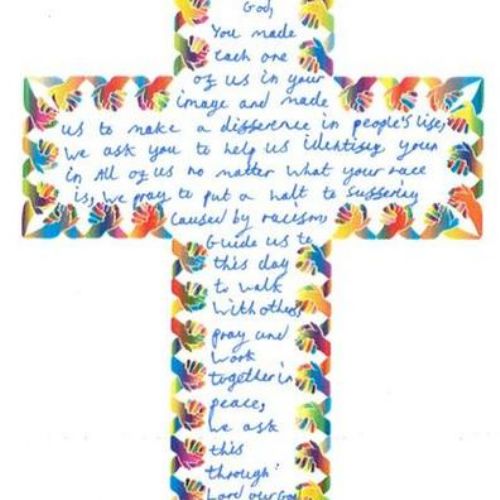 God,
You made
each one
of us in your
image and made
us to make a difference in people's life,
we ask you to help us identify your
in All of us no matter what your race
is, we pray to put a halt to suffering
caused by racism,
Guide us to
this day
to walk
with others
pray and
work
together in
peace,
we ask
this
through:
Lord our God